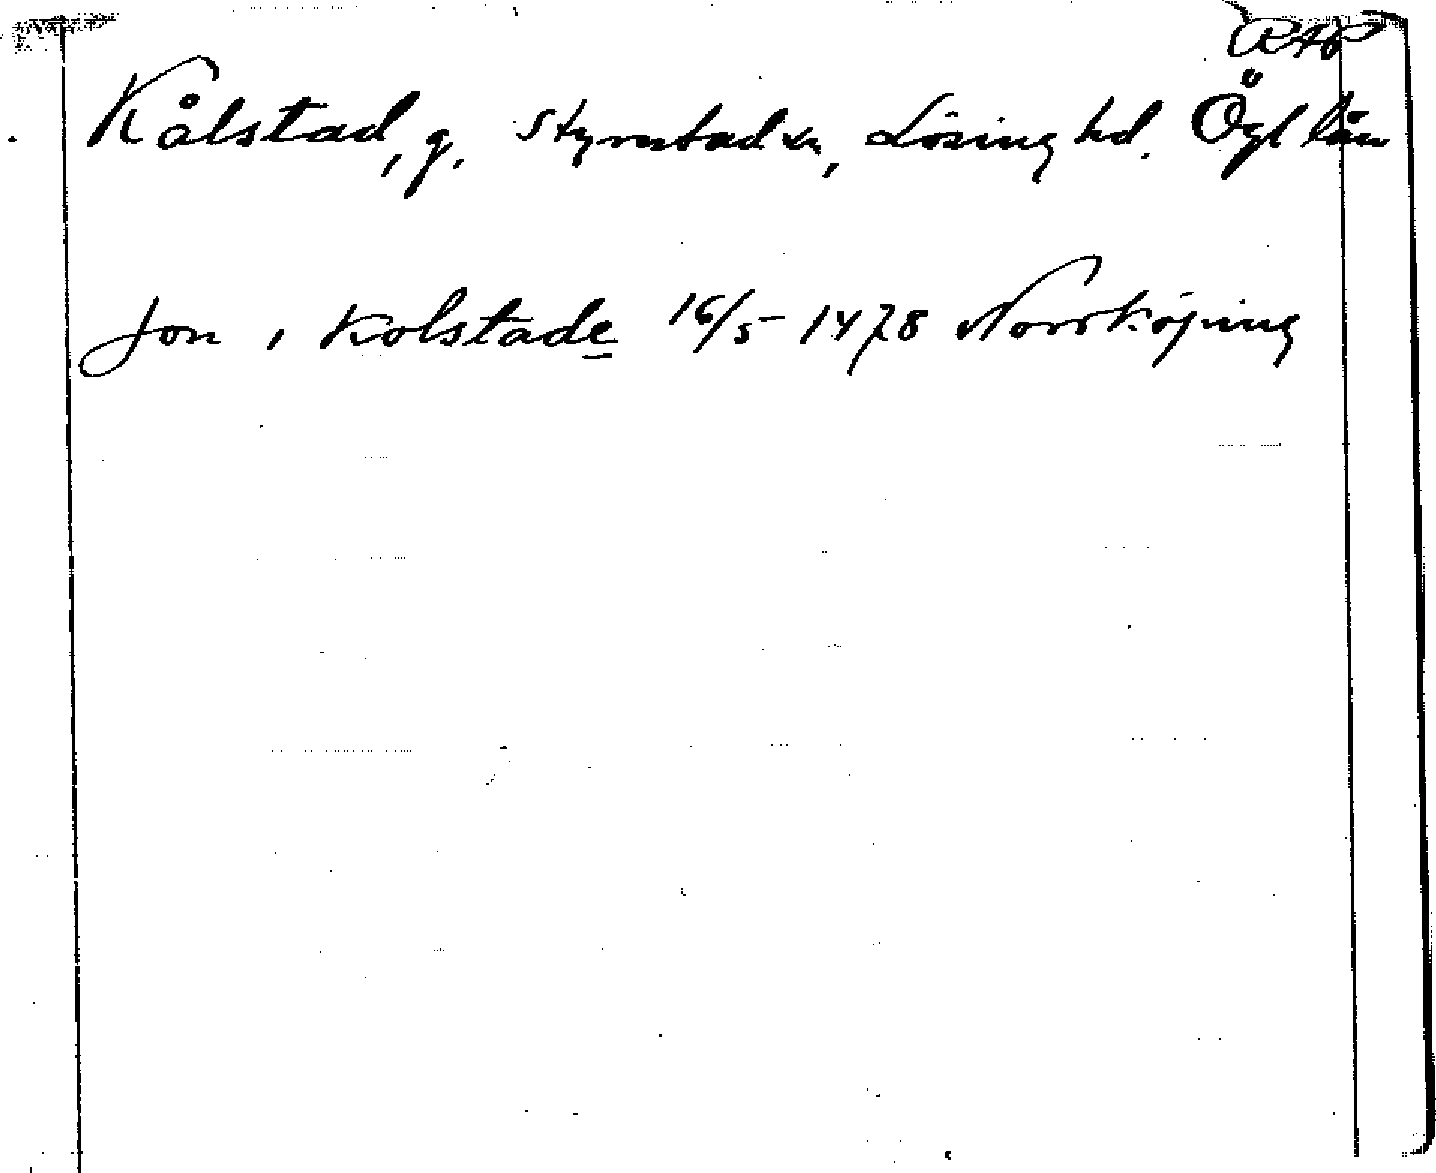 RAP
Kålstad, g. Styrstad sn, Lösing hd. Ögl län
Jon i Kolstade 16/5 1478 Norrköping